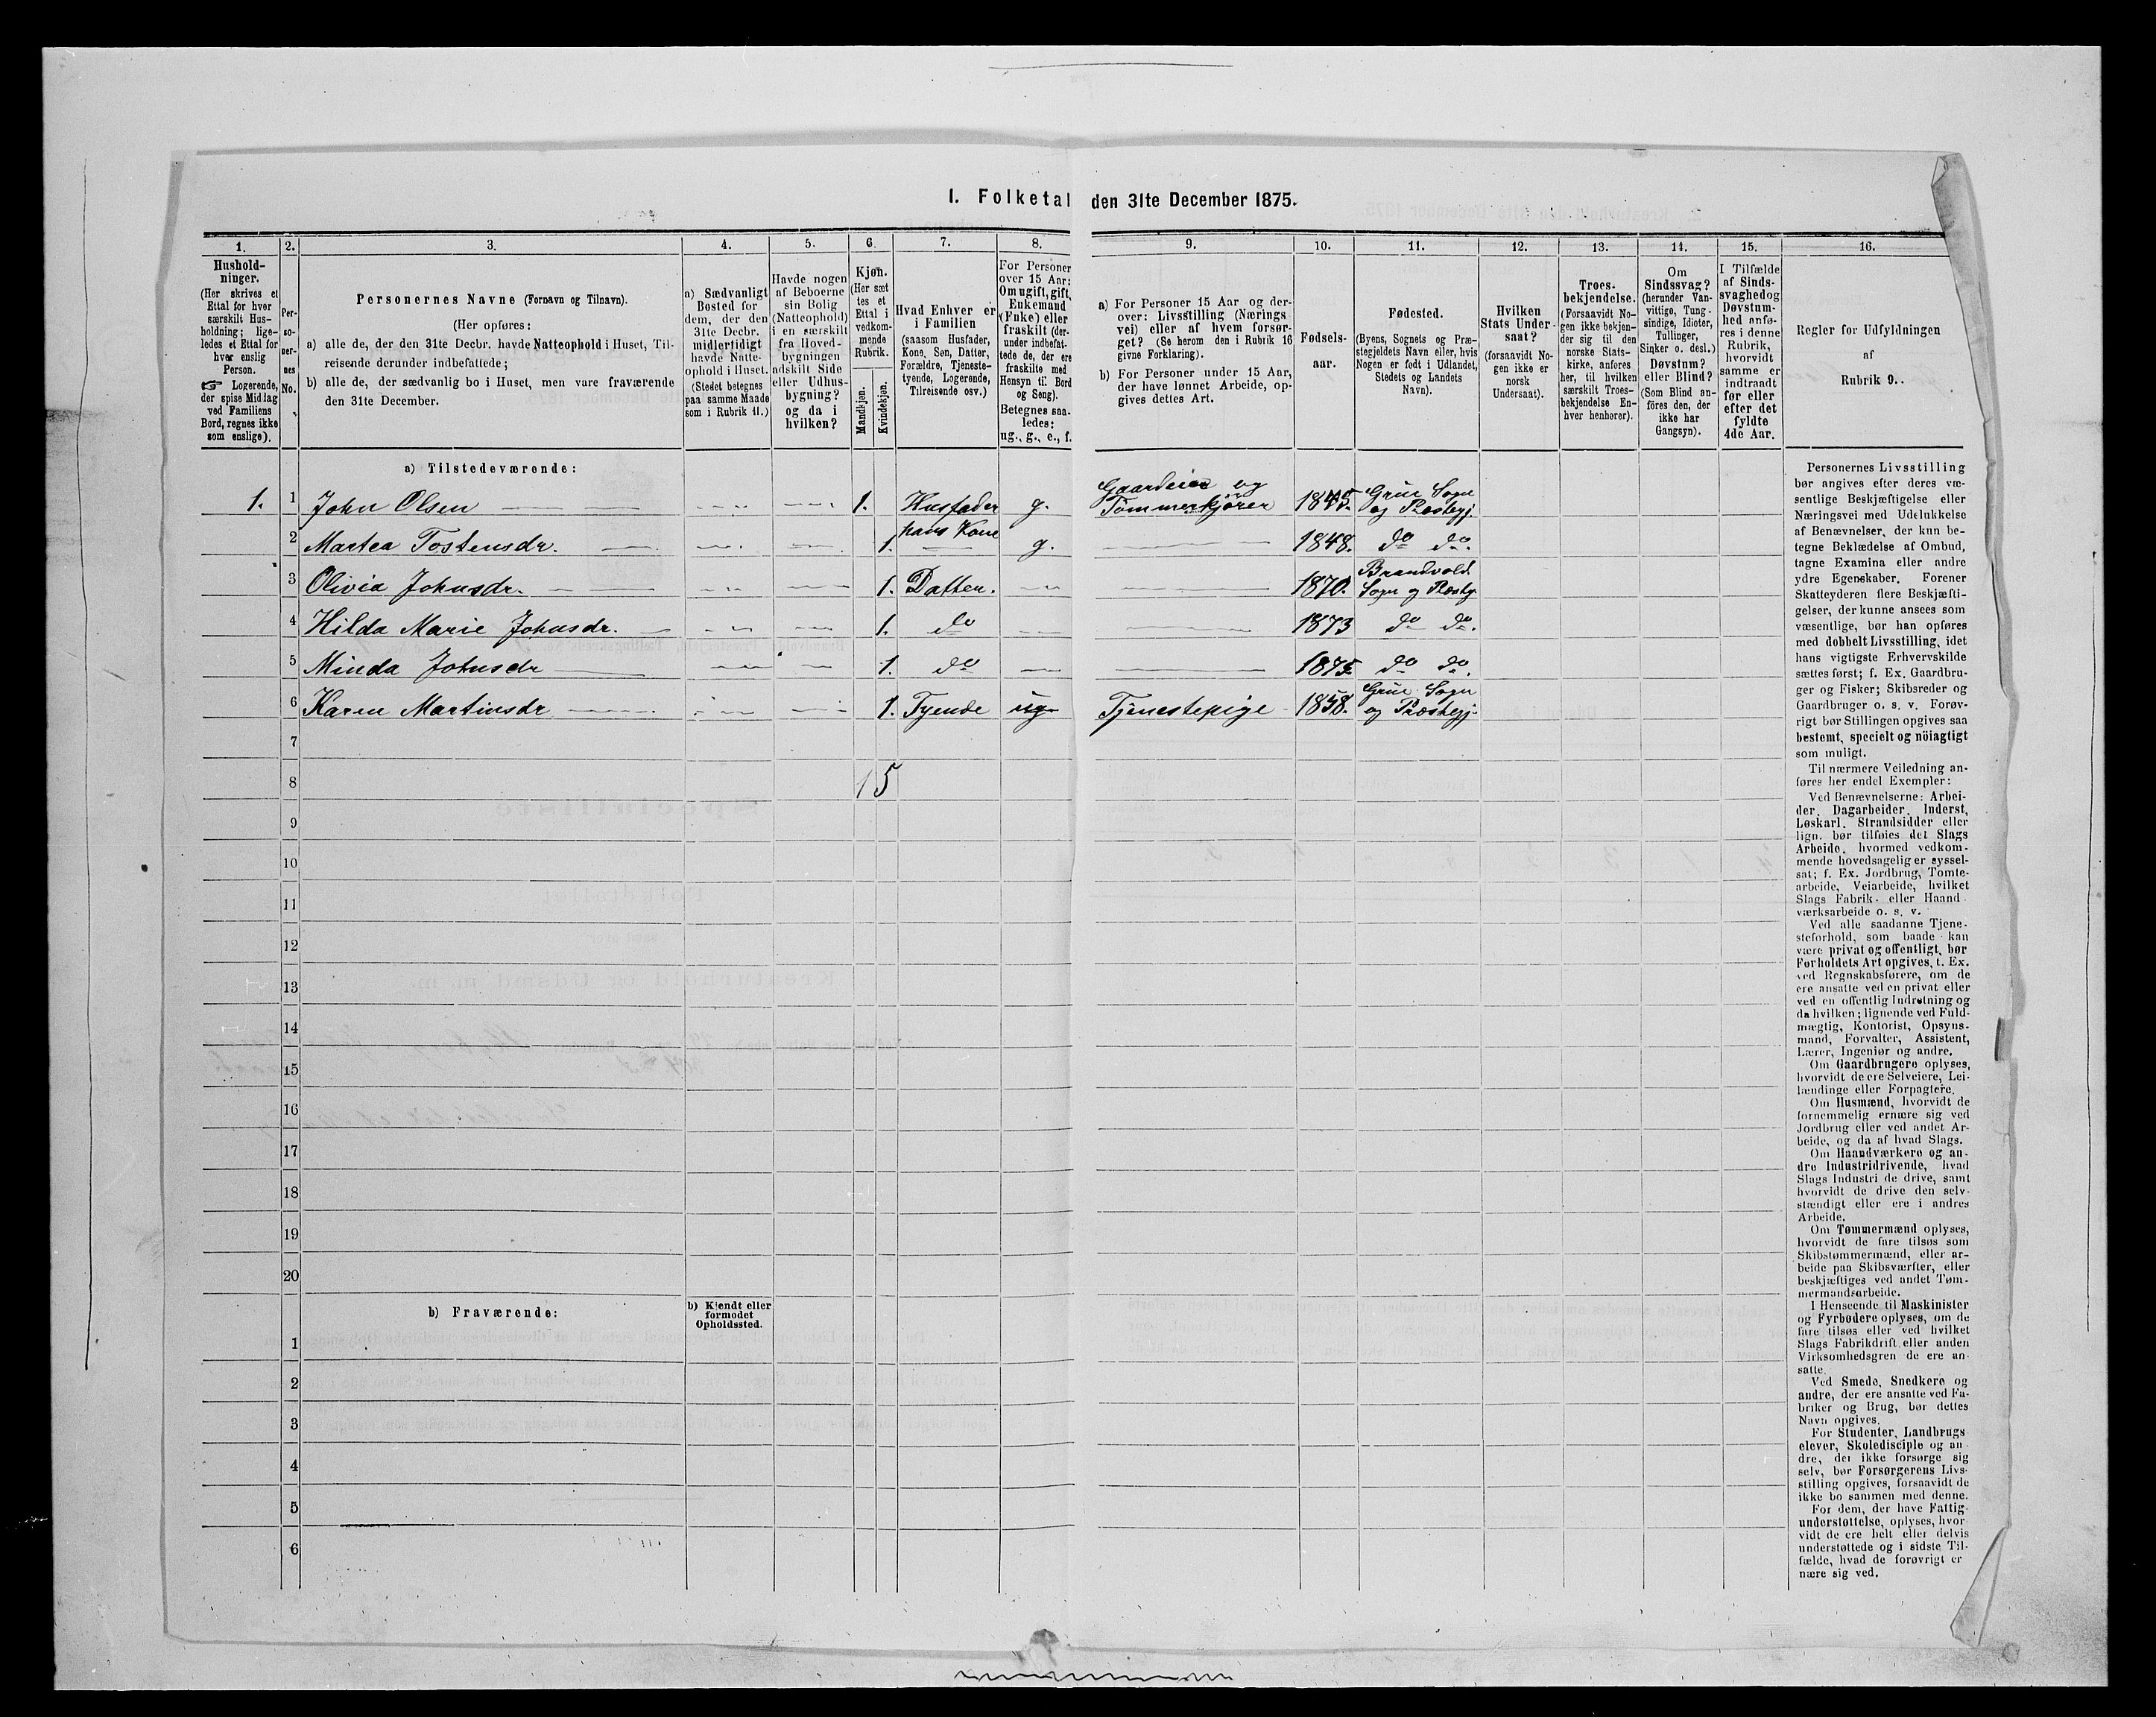 I. Folketal den 31te December 1875.
1. 2. 3. 4. 5. 6. 7. 8. 9. 10. 11. 12. 13. 14. 15. 16.
Hushold-
ninger.
(Her skrives et
Ettal for hver
særskilt Hus-
holdning; lige-
ledes et Ettal for
hver enslig
Person.
☞ Logerende,
der spise Middag
ved Familiens
Bord, regnes ikke
som enslige).
Per-
so-
ner-
nes
No.
Personernes Navne (Fornavn og Tilnavn).
(Her opføres:
a) alle de, der den 31te Decbr. havde Natteophold i Huset, Til-
reisende derunder indbefattede;
b) alle de, der sædvanlig bo i Huset, men vare fraværende
den 31te December.
a) Sædvanligt
Bosted for
dem, der den
31te Decbr.
midlertidigt
havde Natte-
ophold i Huset.
(Stedet betegnes
paa samme Maade
som i Rubrik 11.)
Havde nogen
af Beboerne
sin Bolig
(Natteophold)
i en særskilt
fra Hoved-
bygningen
adskilt Side
eller Udhus-
bygning?
og da i
hvilken?
Kjøn.
(Her sæt
tes et
Ettal i
vedkom-
mende
Rubrik.
Mandkjøn.
Kvindekjøn.
Hvad Enhver er
i Familien
(saasom Husfader,
Kone, Søn, Datter,
Forældre, Tjeneste-
tyende, Logerende,
Tilreisende osv.)
For Personer
over 15 Aar:
Om ugift, gift,
Enkemand
(Enke) eller
fraskilt (der-
under indbefat-
tede de, der ere
fraskilte med
Hensyn til Bord
og Seng).
Betegnes saa-
ledes:
ug., g., e., f.
a) For Personer 15 Aar og der-
over: Livsstilling (Nærings
vei) eller af hvem forsør-
get? (Se herom den i Rubrik 16
givne Forklaring).
b) For Personer under 15 Aar,
der have lønnet Arbeide, op-
gives dettes Art.
Fødsels-
aar.
Fødested.
(Byens, Sognets og Præ-
stegjeldets Navn eller, hvis
Nogen er født i Udlandet,
Stedets og Landets
Navn).
Hvilken
Stats Under-
saat?
(forsaavidt No-
gen ikke er
norsk
Undersaat).
Troes-
bekjendelse.
(Forsaavidt No-
gen ikke bekjen-
der sig til den
norske Stats-
kirke, anføres
her, til hvilken
særskilt Troes-
bekjendelse En-
hver henhører).
Om
Sindssvag?
(herunder Van-
vittige, Tung-
sindige, Idioter,
Tullinger,
Sinker o. desl.)
Døvstum?
eller Blind?
(Som Blind an-
føres den, der
ikke har
Gangsyn).
I Tilfælde
af Sinds-
svaghed og
Døvstum-
hed anfø-
res i denne
Rubrik,
hvorvidt
samme er
indtraadt
før eller
efter det
fyldte
4de Aar.
Regler for Udfyldningen
af
Rubrik 9.
a) Tilstedeværende:
1. 1 John Olsen 1. Husfader g. Gaardeier og Tømmerkjører 1845. Grue Sogn og Præstegj.
2 Martea Tostensdr. 1. hans Kone g. 1848. do do.
3 Olivia Johnsdr. 1. Datter. 1870. Brandvold Sogn og Præstg.
4 Hilda Marie Johnsdr. 1. do 1873 do do.
5 Minda Johnsdr 1. do 1875 do do.
6 Karen Martinsdr 1. Tyende ug Tjenestepige 1858. Grue Sogn og Præstegj.
7
8 1 5
9
10
11
12
13
14
15
16
17
18
19
20
b) Fraværende:
b) Kjendt eller
formodet
Opholdssted.
1
2
3
4
5
6
Personernes Livsstilling
bør angives efter deres væ-
sentlige Beskjæftigelse eller
Næringsvei med Udelukkelse
af Benævnelser, der kun be-
tegne Beklædelse af Ombud,
tagne Examina eller andre
ydre Egenskaber. Forener
Skatteyderen flere Beskjæfti-
gelser, der kunne ansees som
væsentlige, bør han opføres
med dobbelt Livsstilling, idet
hans vigtigste Erhvervskilde
sættes først; f. Ex. Gaardbru-
ger og Fisker; Skibsreder og
Gaardbruger o. s. v. Forøv-
rigt bør Stillingen opgives saa
bestemt, specielt og nöiagtigt
som muligt.
Til nærmere Veiledning an-
føres her endel Exempler:
Ved Benævnelserne: Arbei-
der, Dagarbeider, Inderst,
Løskarl, Strandsidder eller
lign. bør tilføies det Slags
Arbeide, hvormed vedkom-
mende hovedsagelig er syssel-
sat; f. Ex. Jordbrug, Tomte-
arbeide, Veiarbeide, hvilket
Slags Fabrik- eller Haand-
værksarbeide o. s. v.
Ved alle saadanne Tjene-
steforhold, som baade kan
være privat og offentligt, bør
Forholdets Art opgives, t. Ex.
ved Regnskabsførere, om de
ere ansatte ved en privat eller
ved en offentlig Indretning og
da hvilken; lignende ved Fuld-
mægtig, Kontorist, Opsyns-
mand, Forvalter, Assistent,
Lærer, Ingeniør og andre.
Om Gaardbrugere oplyses,
hvorvidt de ere Selveiere, Lei-
lændinge eller Forpagtere.
Om Husmænd, hvorvidt de
fornemmelig ernære sig ved
Jordbrug eller ved andet Ar-
beide, og da af hvad Slags.
Om Haandværkere og an-
dre Industridrivende, hvad
Slags Industri de drive, samt
hvorvidt de drive den selv-
stændigt eller ere i andres
Arbeide.
Om Tømmermænd oplyses,
hvorvidt de fare tilsøs som
Skibstømmermænd, eller ar-
beide paa Skibsværfter, eller
beskjæftiges ved andet Tøm-
mermandsarbeide.
I Henseende til Maskinister
og Fyrbødere oplyses, om de
fare tilsøs eller ved hvilket
Slags Fabrikdrift eller anden
Virksomhedsgren de ere an-
satte.
Ved Smede, Snedkere og
andre, der ere ansatte ved Fa-
briker og Brug, bør dettes
Navn opgives.
For Studenter, Landbrugs-
elever, Skoledisciple og an-
dre, der ikke forsørge sig
selv, bør Forsørgerens Livs-
stilling opgives, forsaavidt de
ikke bo sammen med denne.
For dem, der have Fattig-
understøttelse, oplyses, hvor-
vidt de ere helt eller delvis
understøttede og i sidste Til-
fælde, hvad de forøvrigt er
nære sig ved.